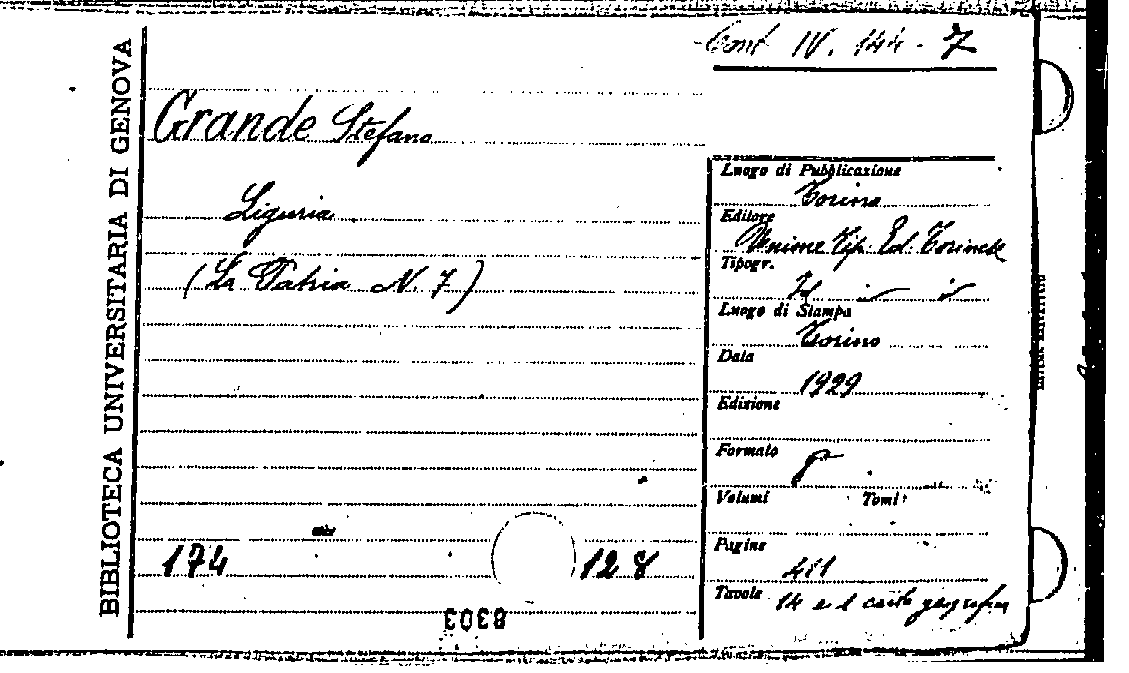 BIBLIOTECA UNIVERSITARIA DI GENOVA
IV. 144 - 7
Grande Stefano
Liguria
(La Patria N. 7)
Luogo di Pubblicazione
Torino
Editore
Unione Tip. Ed. Torinese
Tipogr.
Id
Luogo di Stampa
Torino
Data
1929
Edizione
Formato
8°
Volumi Tomi
Pagine
Tavole 14 e 1 carta geografica
174 128
8303